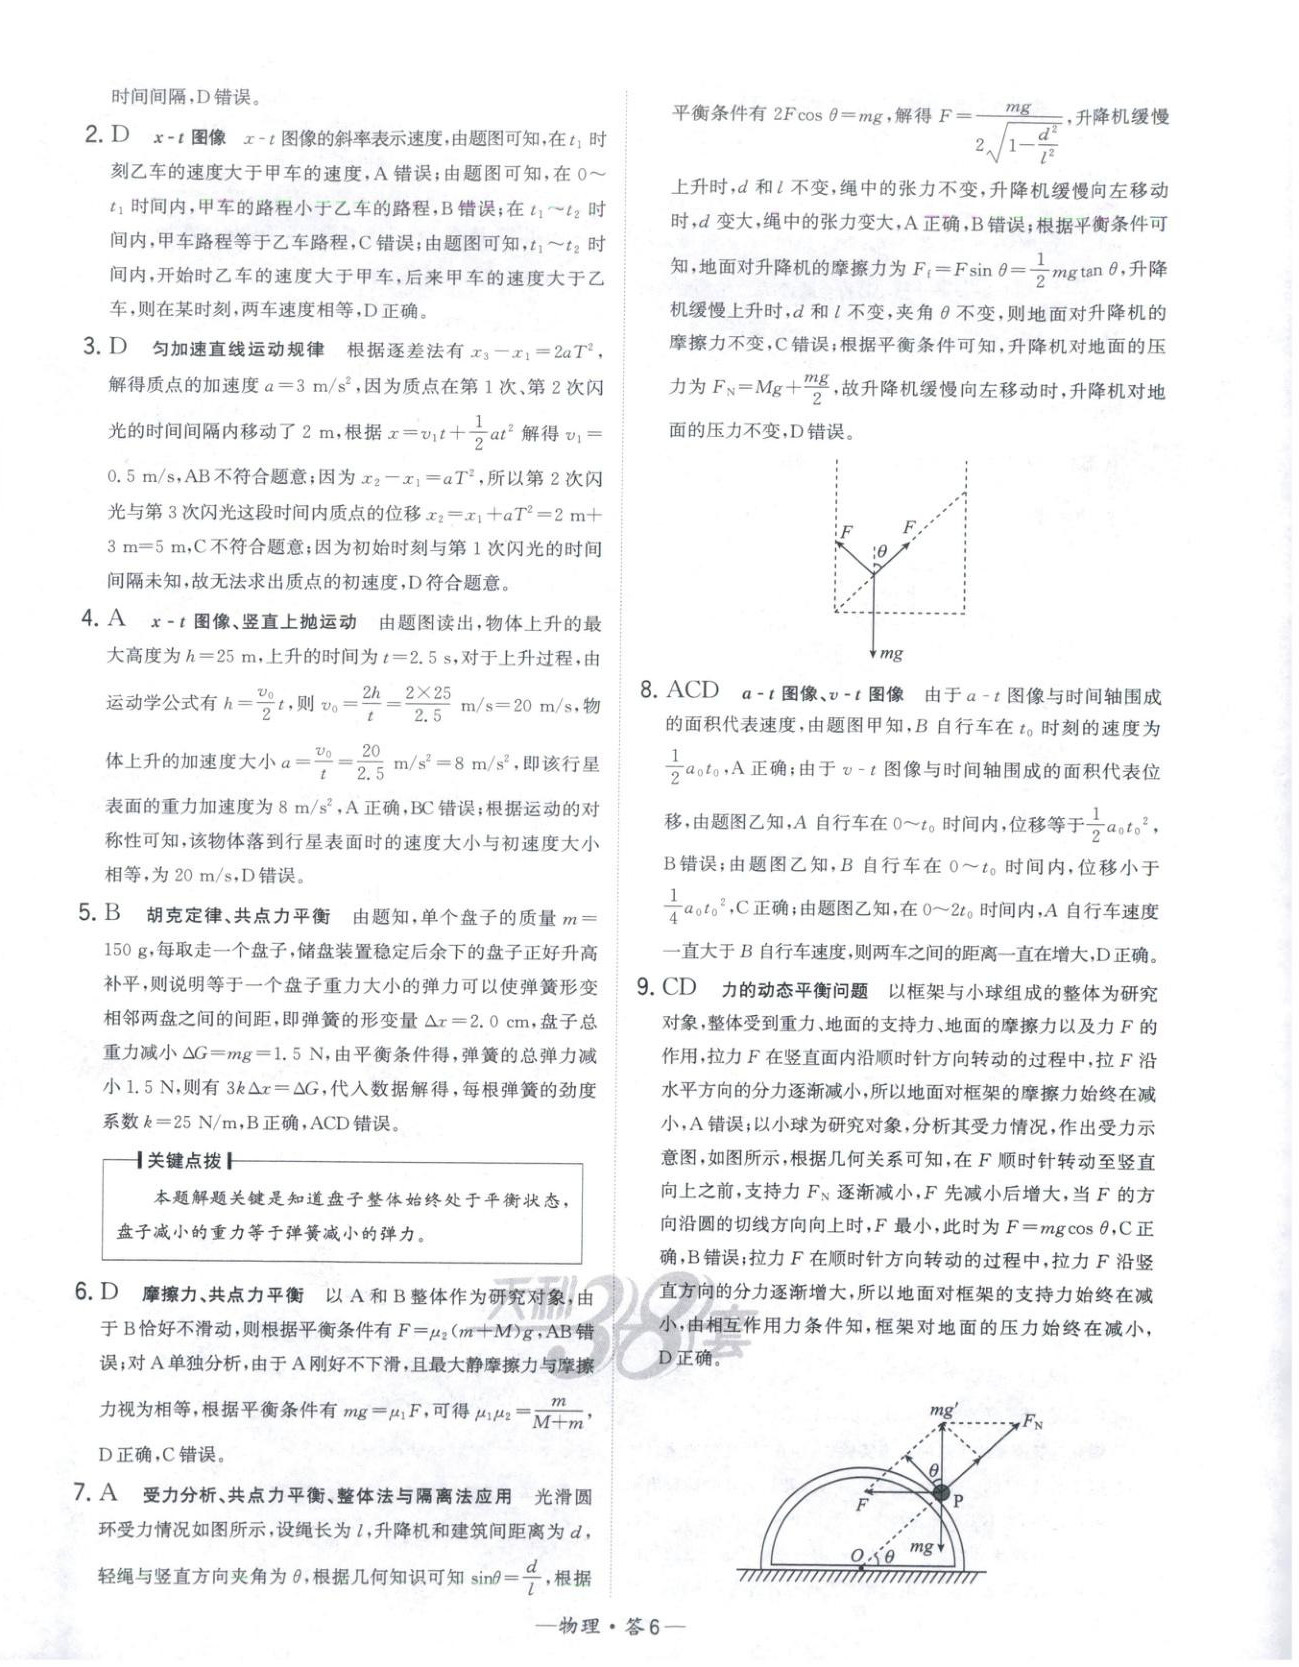 时间间隔,D错误。
2. D x-t图像 x-t图像的斜率表示速度,由题图可知,在t₁时
刻乙车的速度大于甲车的速度,A错误;由题图可知,在0~
t₁时间内,甲车的路程小于乙车的路程,B错误;在t₁~t₂时
间内,甲车路程等于乙车路程,C错误;由题图可知,t₁~t₂时
间内,开始时乙车的速度大于甲车,后来甲车的速度大于乙
车,则在某时刻,两车速度相等,D正确。
3. D 匀加速直线运动规律 根据逐差法有x₃-x₁=2aT²,
解得质点的加速度a=3 m/s²,因为质点在第1次、第2次闪
光的时间间隔内移动了2 m,根据x=v₁t+1/2at²解得v₁=
0.5 m/s,AB不符合题意;因为x₂-x₁=aT²,所以第2次闪
光与第3次闪光这段时间内质点的位移x₂=x₁+aT²=2 m+
3 m=5 m,C不符合题意;因为初始时刻与第1次闪光的时间
间隔未知,故无法求出质点的初速度,D符合题意。
4. A x-t图像、竖直上抛运动 由题图读出,物体上升的最
大高度为h=25 m,上升的时间为t=2.5 s,对于上升过程,由
运动学公式有h=v₀/2t,则v₀=2h/t=2×25/2.5 m/s=20 m/s,物
体上升的加速度大小a=v₀/t=20/2.5 m/s²=8 m/s²,即该行星
表面的重力加速度为8 m/s²,A正确,BC错误;根据运动的对
称性可知,该物体落到行星表面时的速度大小与初速度大小
相等,为20 m/s,D错误。
5. B 胡克定律、共点力平衡 由题知,单个盘子的质量m=
150 g,每取走一个盘子,储盘装置稳定后余下的盘子正好升高
补平,则说明等于一个盘子重力大小的弹力可以使弹簧形变
相邻两盘之间的间距,即弹簧的形变量Δx=2.0 cm,盘子总
重力减小ΔG=mg=1.5 N,由平衡条件得,弹簧的总弹力减
小1.5 N,则有3kΔx=ΔG,代入数据解得,每根弹簧的劲度
系数k=25 N/m,B正确,ACD错误。
关键点拨
本题解题关键是知道盘子整体始终处于平衡状态,
盘子减小的重力等于弹簧减小的弹力。
6. D 摩擦力、共点力平衡 以A和B整体作为研究对象,由
于B恰好不滑动,则根据平衡条件有F=μ₂(m+M)g,AB错
误;对A单独分析,由于A刚好不下滑,且最大静摩擦力与摩擦
力视为相等,根据平衡条件有mg=μ₁F,可得μ₁μ₂=m/(M+m),
D正确,C错误。
7. A 受力分析、共点力平衡、整体法与隔离法应用 光滑圆
环受力情况如图所示,设绳长为l,升降机和建筑间距离为d,
轻绳与竖直方向夹角为θ,根据几何知识可知sinθ=d/l,根据
平衡条件有2Fcos θ=mg,解得F=mg/(2√(1-d²/l²)),升降机缓慢
上升时,d和l不变,绳中的张力不变,升降机缓慢向左移动
时,d变大,绳中的张力变大,A正确,B错误;根据平衡条件可
知,地面对升降机的摩擦力为Ff=Fsin θ=1/2mgtan θ,升降
机缓慢上升时,d和l不变,夹角θ不变,则地面对升降机的
摩擦力不变,C错误;根据平衡条件可知,升降机对地面的压
力为FN=Mg+mg/2,故升降机缓慢向左移动时,升降机对地
面的压力不变,D错误。
F F
θ
mg
8. ACD a-t图像、v-t图像 由于a-t图像与时间轴围成
的面积代表速度,由题图甲知,B自行车在t₀时刻的速度为
1/2a₀t₀,A正确;由于v-t图像与时间轴围成的面积代表位
移,由题图乙知,A自行车在0~t₀时间内,位移等于1/2a₀t₀²,
B错误;由题图乙知,B自行车在0~t₀时间内,位移小于
1/4a₀t₀²,C正确;由题图乙知,在0~2t₀时间内,A自行车速度
一直大于B自行车速度,则两车之间的距离一直在增大,D正确。
9. CD 力的动态平衡问题 以框架与小球组成的整体为研究
对象,整体受到重力、地面的支持力、地面的摩擦力以及力F的
作用,拉力F在竖直面内沿顺时针方向转动的过程中,拉F沿
水平方向的分力逐渐减小,所以地面对框架的摩擦力始终在减
小,A错误;以小球为研究对象,分析其受力情况,作出受力示
意图,如图所示,根据几何关系可知,在F顺时针转动至竖直
向上之前,支持力FN逐渐减小,F先减小后增大,当F的方
向沿圆的切线方向向上时,F最小,此时为F=mgcos θ,C正
确,B错误;拉力F在顺时针方向转动的过程中,拉力F沿竖
直方向的分力逐渐增大,所以地面对框架的支持力始终在减
小,由相互作用力条件知,框架对地面的压力始终在减小,
D正确。
mg′ FN
θ
F P
O θ mg
天利38套
—物理·答6—